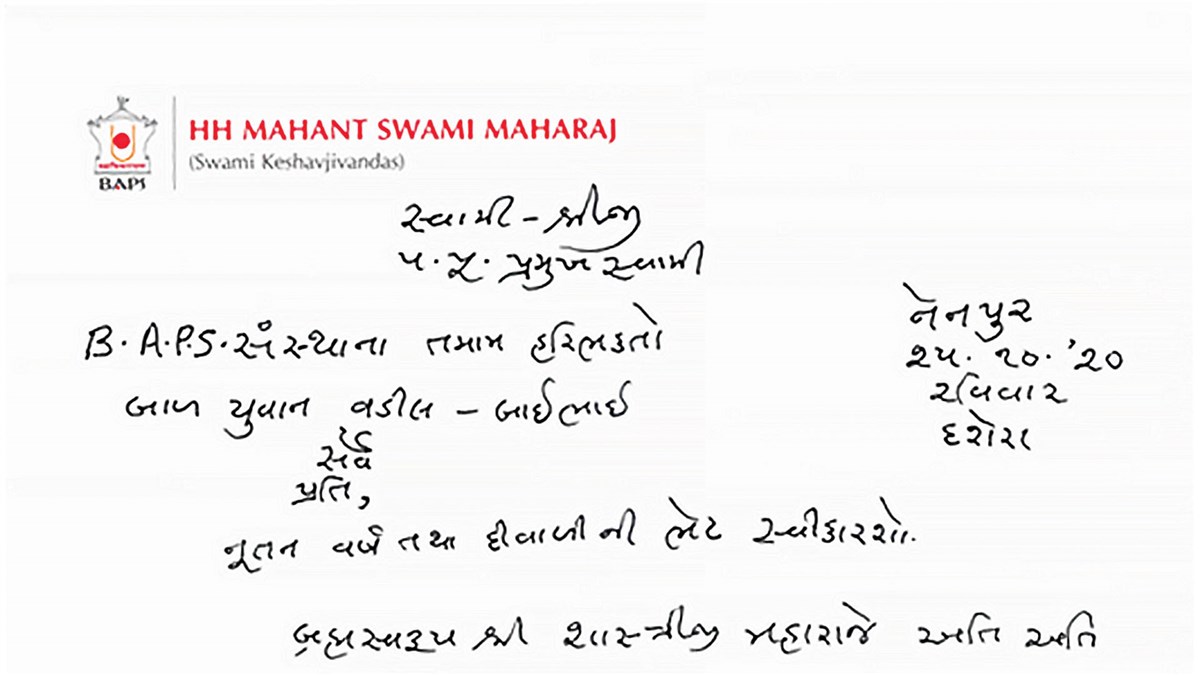 HH MAHANT SWAMI MAHARAJ
(Swami Keshavjivandas)
BAPS
સ્વામી - શ્રીજી
પ. પૂ. પ્રમુખસ્વામી
નેનપુર
૨૫. ૧૦. '૨૦
રવિવાર
દશેરા
B. A.P.S. સંસ્થાના તમામ હરિભક્તો
બાળ યુવાન વડીલ - બાઈભાઈ
સર્વે
પ્રતિ,
નૂતન વર્ષ તથા દીવાળીની ભેટ સ્વીકારશો.
બ્રહ્મસ્વરૂપ શ્રી શાસ્ત્રીજી મહારાજે અતિ અતિ